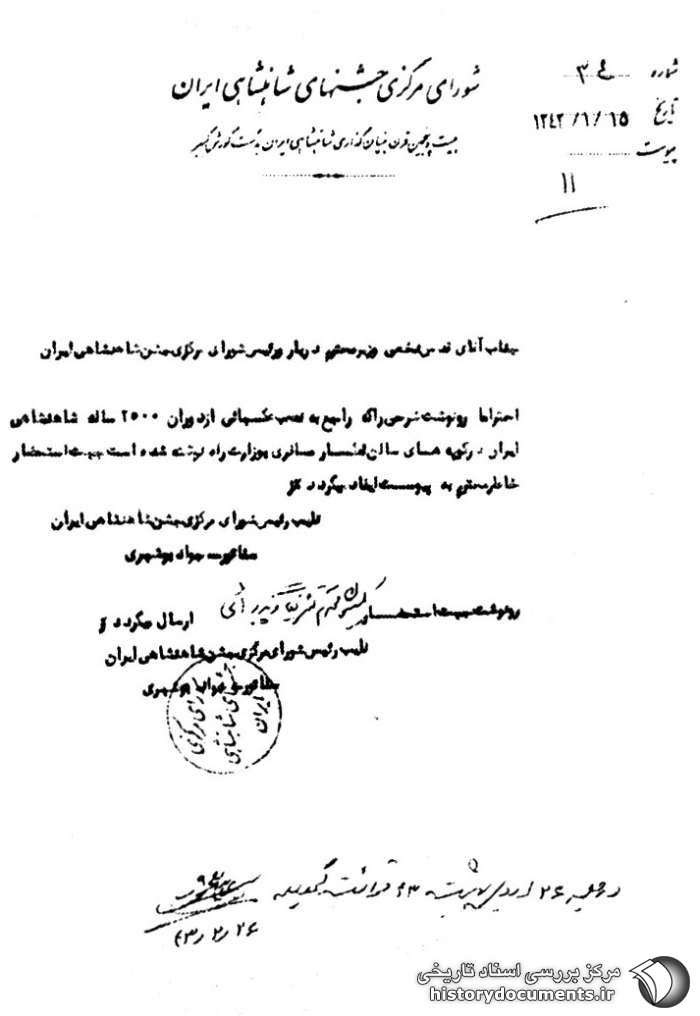 شورای مرکزی جشنهای شاهنشاهی ایران
بیست و پنجمین قرن بنیان گذاری شاهنشاهی ایران بدست کورش کبیر
شماره ۳۴
تاریخ ۱۳۴۳/۱/۱۵
پیوست
۱۱
جناب آقای قدس نخعی وزیر محترم دربار و رئیس شورای مرکزی جشن شاهنشاهی ایران
احتراما رونوشت شرحی راکه راجع به نصب عکسهائی از دوران ۲۵۰۰ ساله شاهنشاهی
ایران در کوپه های سالن قطار مسافری بوزارت راه نوشته شده است جهت استحضار
خاطر محترم به پیوست ایفاد میگردد
نایب رئیس شورای مرکزی جشن شاهنشاهی ایران
سناتور جواد بوشهری
رونوشت جهت استحضار کمیسیون محترم تشریفات و پذیرائی ارسال میگردد
نایب رئیس شورای مرکزی جشن شاهنشاهی ایران
سناتور جواد بوشهری
شورای مرکزی
جشنهای شاهنشاهی
ایران
در جلسه ۲۶ اردیبهشت ۴۳ قرائت گردید
۲۶ ر ۲ ر ۴۳
مرکز بررسی اسناد تاریخی
historydocuments.ir